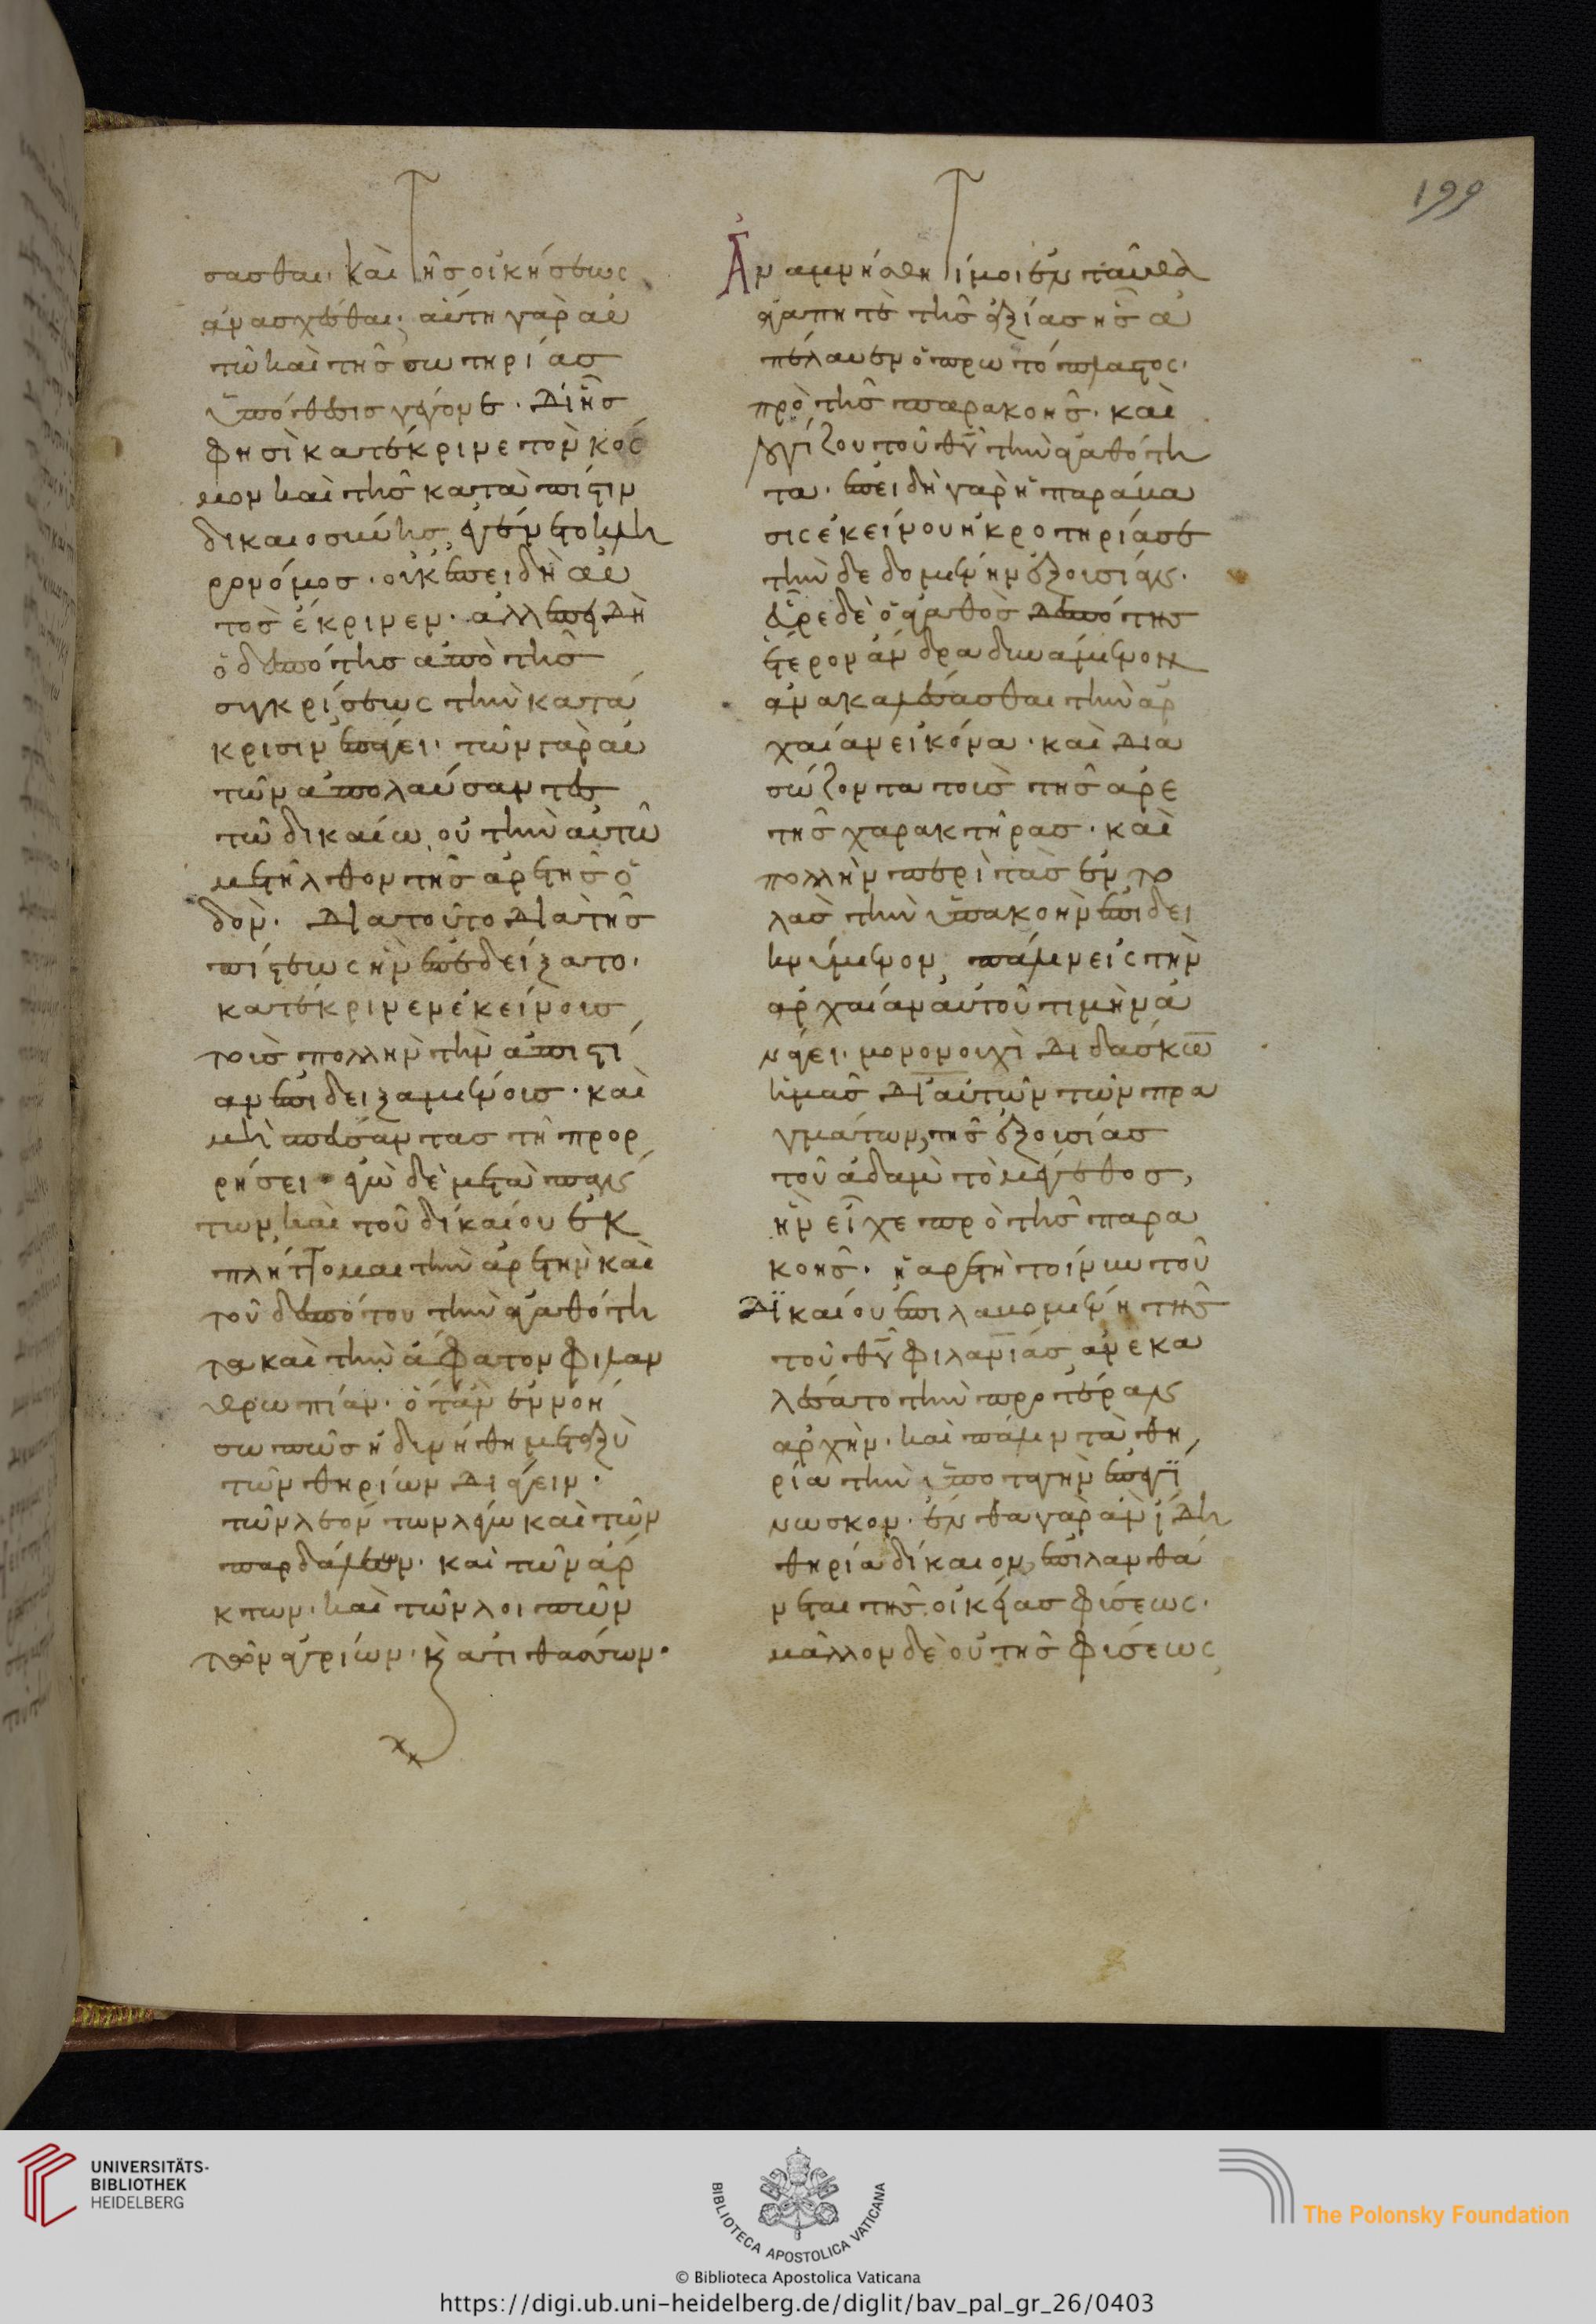 199
σασθαι. καὶ τῆς οἰκήσεως
ἀνασχέσθαι. αὕτη γὰρ αὐ
τῶ καὶ τῆς σωτηρίας
ὑπόθεσις γέγονε. Δι' ἧς
φησὶ κατέκρινε τὸν κόσ
μον καὶ τῆς κατὰ πίστιν
δικαιοσύνης ἐγένετο κλη
ρονόμος. οὐκ ἐπειδὴ αὐ
τὸς ἔκρινεν. ἀλλ' ἐπειδὴ
ὁ δεσπότης ἀπὸ τῆς
συγκρίσεως τὴν κατά
κρισιν ἐπάγει. τῶν γὰρ αὐ
τῶν ἀπολαύσαντες
τῶ δικαίω, οὐ τὴν αὐτὴν
μετῆλθον τῆς ἀρετῆς ὁ
δόν. Διατοῦτο Διὰ τῆς
πίστεως ἣν ἐπεδείξατο.
κατέκρινεν ἐκείνους
τοὺς πολλὴν τὴν ἀπιστί
αν ἐπιδειξαμένους. καὶ
μὴ πιστεύσαντας τῆ προρ
ρήσει. ἐγὼ δὲ μετὰ πάν
των, καὶ τοῦ δικαίου ἐκ
πλήττομαι τὴν ἀρετὴν καὶ
τοῦ δεσπότου τὴν ἀγαθότη
τα καὶ τὴν ἄφατον φιλαν
θρωπίαν. ὅταν ἐννοή
σω πῶς ἠδυνήθη μεταξὺ
τῶν θηρίων Διάγειν.
τῶν λεόντων λέγω καὶ τῶν
παρδάλεων. καὶ τῶν ἄρ
κτων. καὶ τῶν λοιπῶν
τῶν ἀγρίων. κ ατιθασσων.
Ἀναμνήσθητί μοι ἐνταῦθα
ἀγαπητὲ τῆς ἀξίας ἧς ἀ
πέλαυεν ὁ πρωτόπλαστος.
πρὸ τῆς παρακοῆς. καὶ
λογίζου τοῦ θυ τὴν ἀγαθότη
τα. ἐπειδὴ γὰρ ἡ παράβα
σις ἐκείνου ἠκροτηρίασε
τὴν δεδομένην ἐξουσίαν.
εὗρε δὲ ὁ ἀγαθὸς Δεσπότης
ἕτερον ἄνδρα δυνάμενον
ἀνακαλέσασθαι τὴν ἀρ
χαίαν εἰκόνα. καὶ Δια
σώζοντα τοὺς τῆς ἀρε
τῆς χαρακτῆρας. καὶ
πολλὴν περὶ τὰς ἐντο
λὰς τὴν ὑπακοὴν ἐπιδει
κνύμενον, πάλιν εἰς τὴν
ἀρχαίαν αὐτοῦ τιμὴν ἀ
νάγει. μονονουχὶ Διδάσκων
ἡμᾶς Δι' αὐτῶν τῶν πρα
γμάτων, τῆς ἐξουσίας
τοῦ ἀδὰμ τὸ μέγεθος,
ἣν εἶχε πρὸ τῆς παρα
κοῆς. ἡ ἀρετὴ τοίνυν τοῦ
Δικαίου ἐπιλαβομένη τῆς
τοῦ θυ φιλανίας ἀνεκα
λέσατο τὴν προτέραν
ἀρχήν. καὶ πάλιν τὰ θη
ρία τὴν ὑποταγὴν ἐπεγί
νωσκον. ἔνθα γὰρ ἂν ἴδη
θηρία δίκαιον, ἐπιλανθά
νεται τῆς οἰκείας φύσεως.
μᾶλλον δὲ οὐ τῆς φύσεως
UNIVERSITÄTS-
BIBLIOTHEK
HEIDELBERG
BIBLIOTECA APOSTOLICA VATICANA
The Polonsky Foundation
© Biblioteca Apostolica Vaticana
https://digi.ub.uni-heidelberg.de/diglit/bav_pal_gr_26/0403